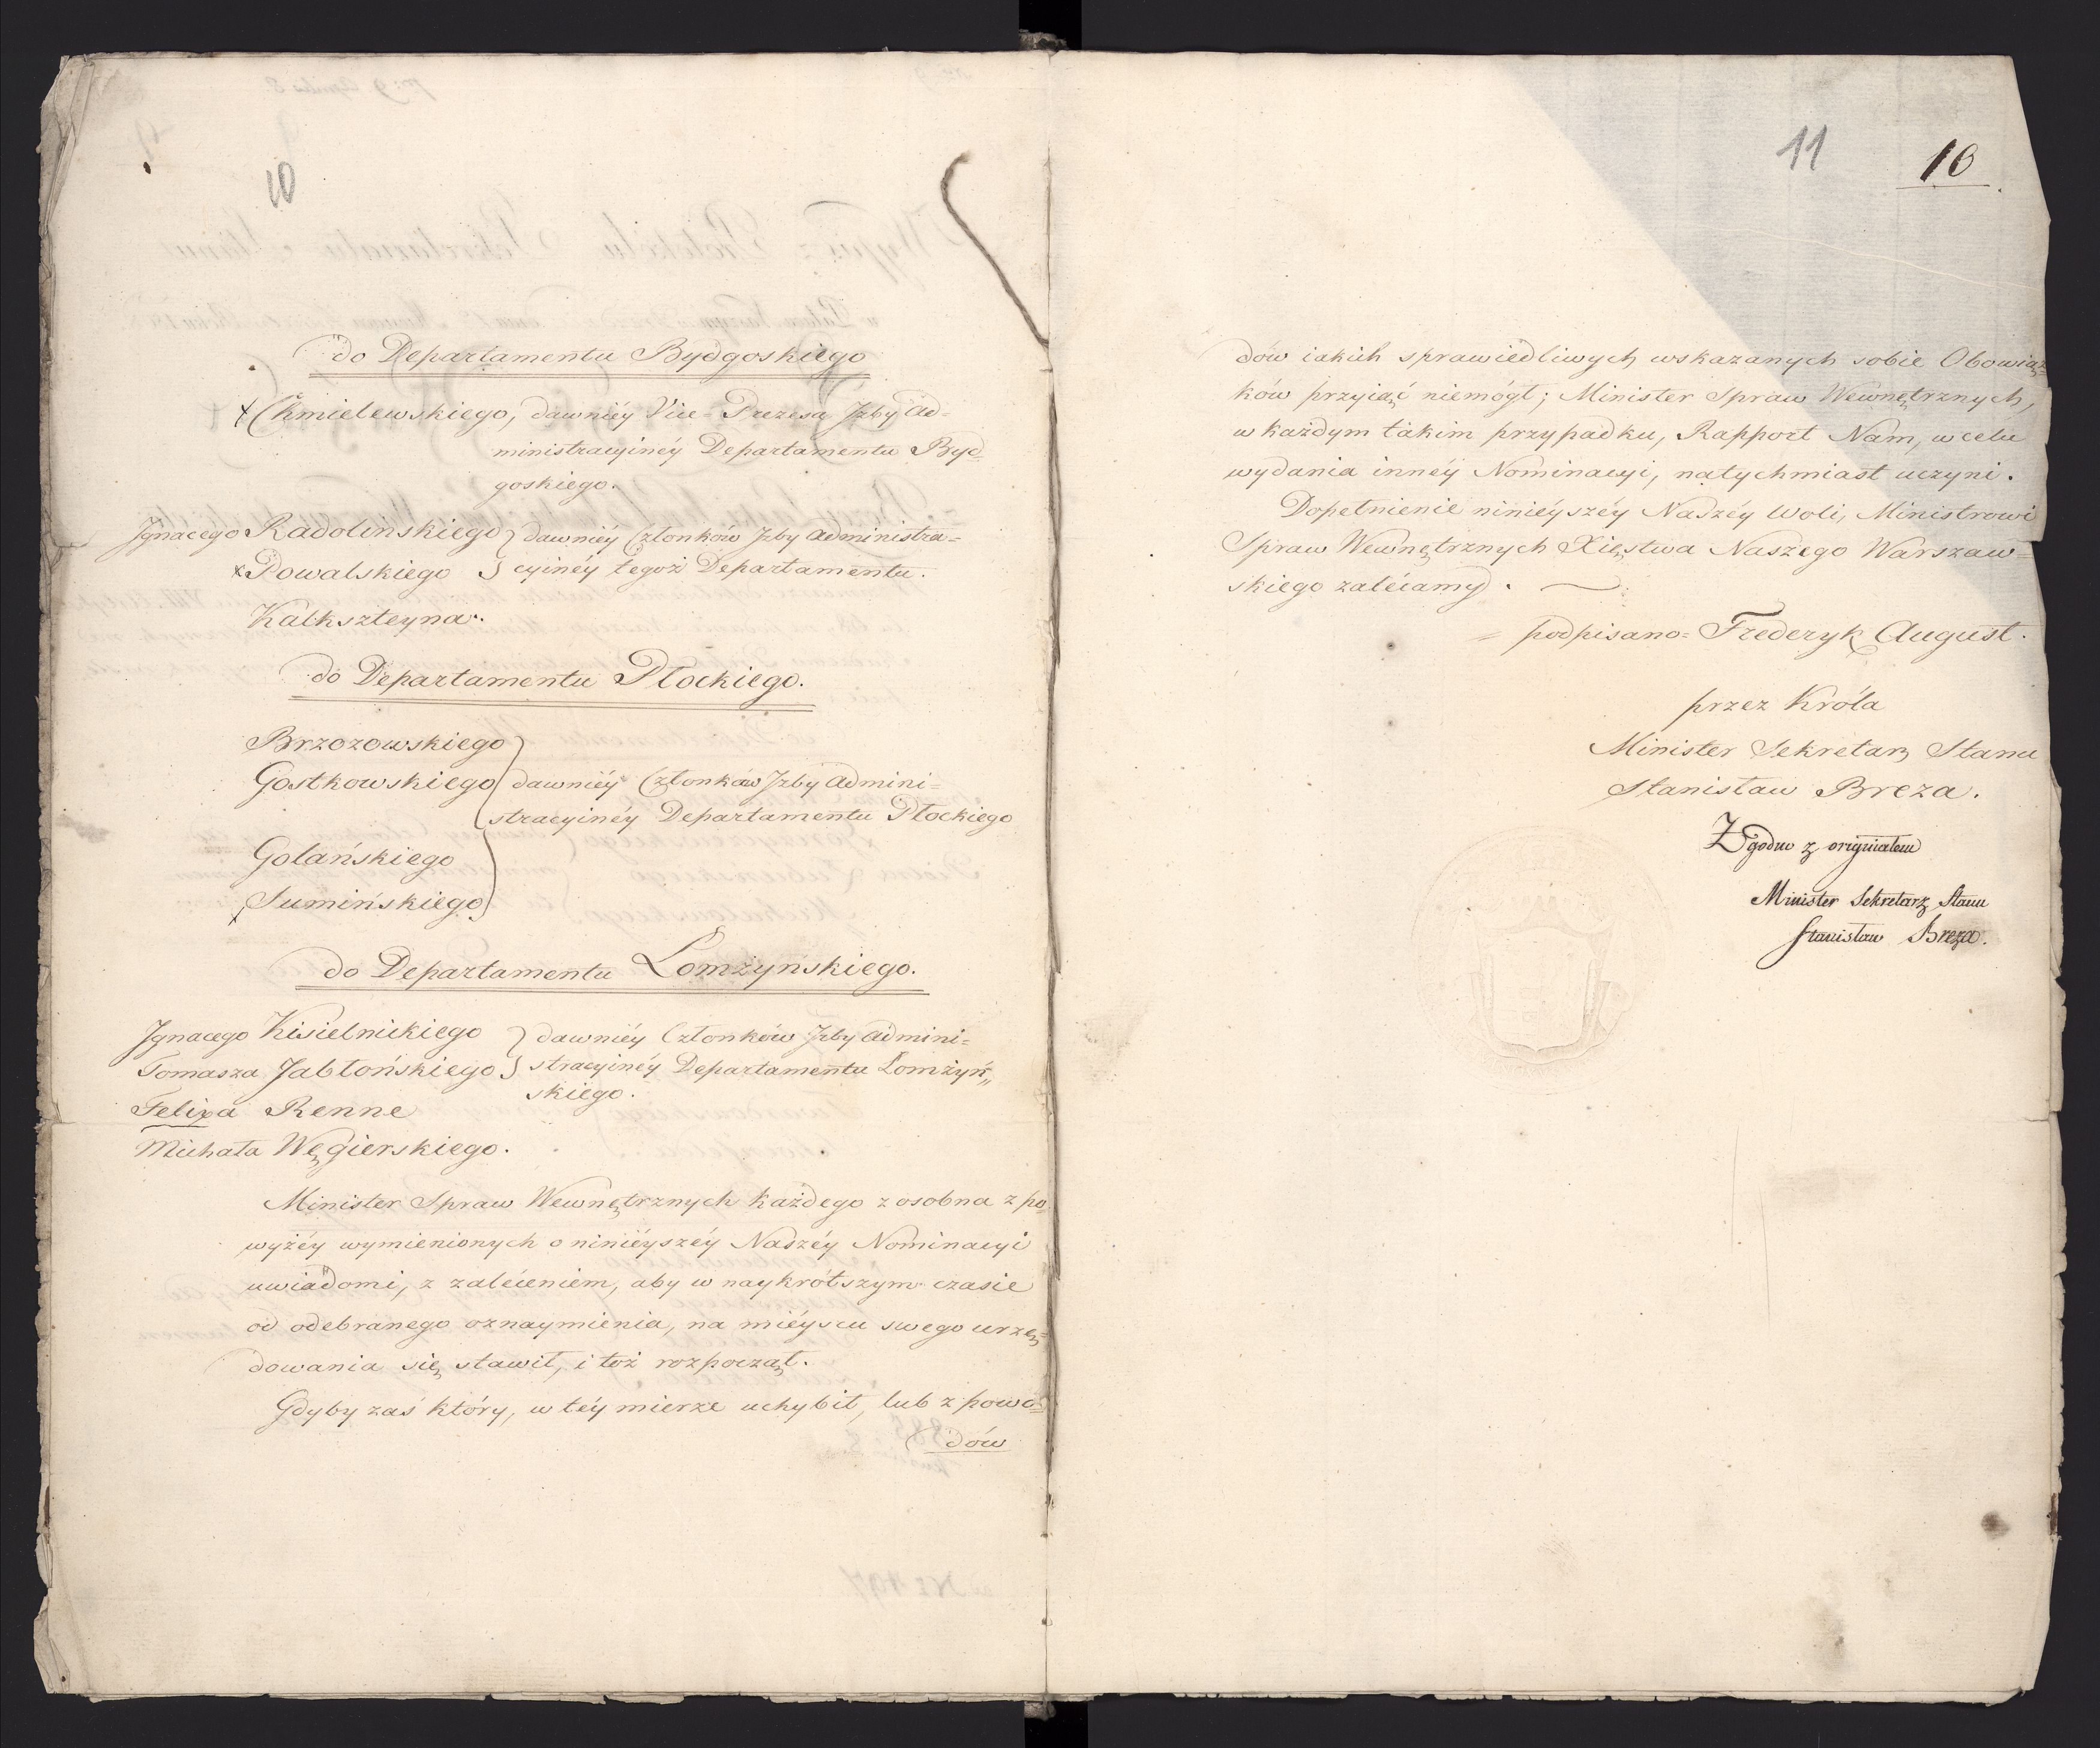 10
do Departamentu Bydgoskiego
x Chmielewskiego, dawniéy Vice-Prezesa Jzby Ad=
ministracyinéy Departamentu Byd=
goskiego.
Jgnacego Radolinskiego } dawniéy Członków Jzby Administra=
x Powalskiego } cyinéy tegoż Departamentu.
Kalkszteyna.
do Departamentu Płockiego.
Brzozowskiego
Gostkowskiego } dawniéy Członków Jzby Admini=
stracyinéy Departamentu Płockiego
Golańskiego
x Sumińskiego
do Departamentu Łomżyńskiego.
Jgnacego Kisielnickiego } dawniéy Członków Jzby Admini=
Tomasza Jabłońskiego } stracyinéy Departamentu Łomżyń„
skiego.
Felixa Renne
Michała Węgierskiego.
Minister Spraw Wewnętrznych każdego z osobna z po=
wyżéy wymienionych o ninieyszéy Naszéy Nominacyi
uwiadomi, z zaléceniem, aby w naykrótszym czasie
od odebranego oznaymienia, na mieyscu swego urzę=
dowania się stawił, i toż rozpoczął.
Gdyby zaś który, w téy mierze uchybił, lub z powo=
dów
11 10
dów iakich sprawiedliwych wskazanych sobie Obowiąz=
ków przyiąć niemógł; Minister Spraw Wewnętrznych,
w każdym takim przypadku, Rapport Nam, w celu
wydania innéy Nominacyi, natychmiast uczyni.
Dopełnienie ninieyszéy Naszéy Woli, Ministrowi
Spraw Wewnętrznych Xięstwa Naszego Warszaw=
skiego zaléćamy.
= podpisano = Frederyk August.
przez Króla
Minister Sekretarz Stanu
Stanisław Breza.
Zgodno z originałem
Minister Sekretarz Stanu
Stanisław Breza.